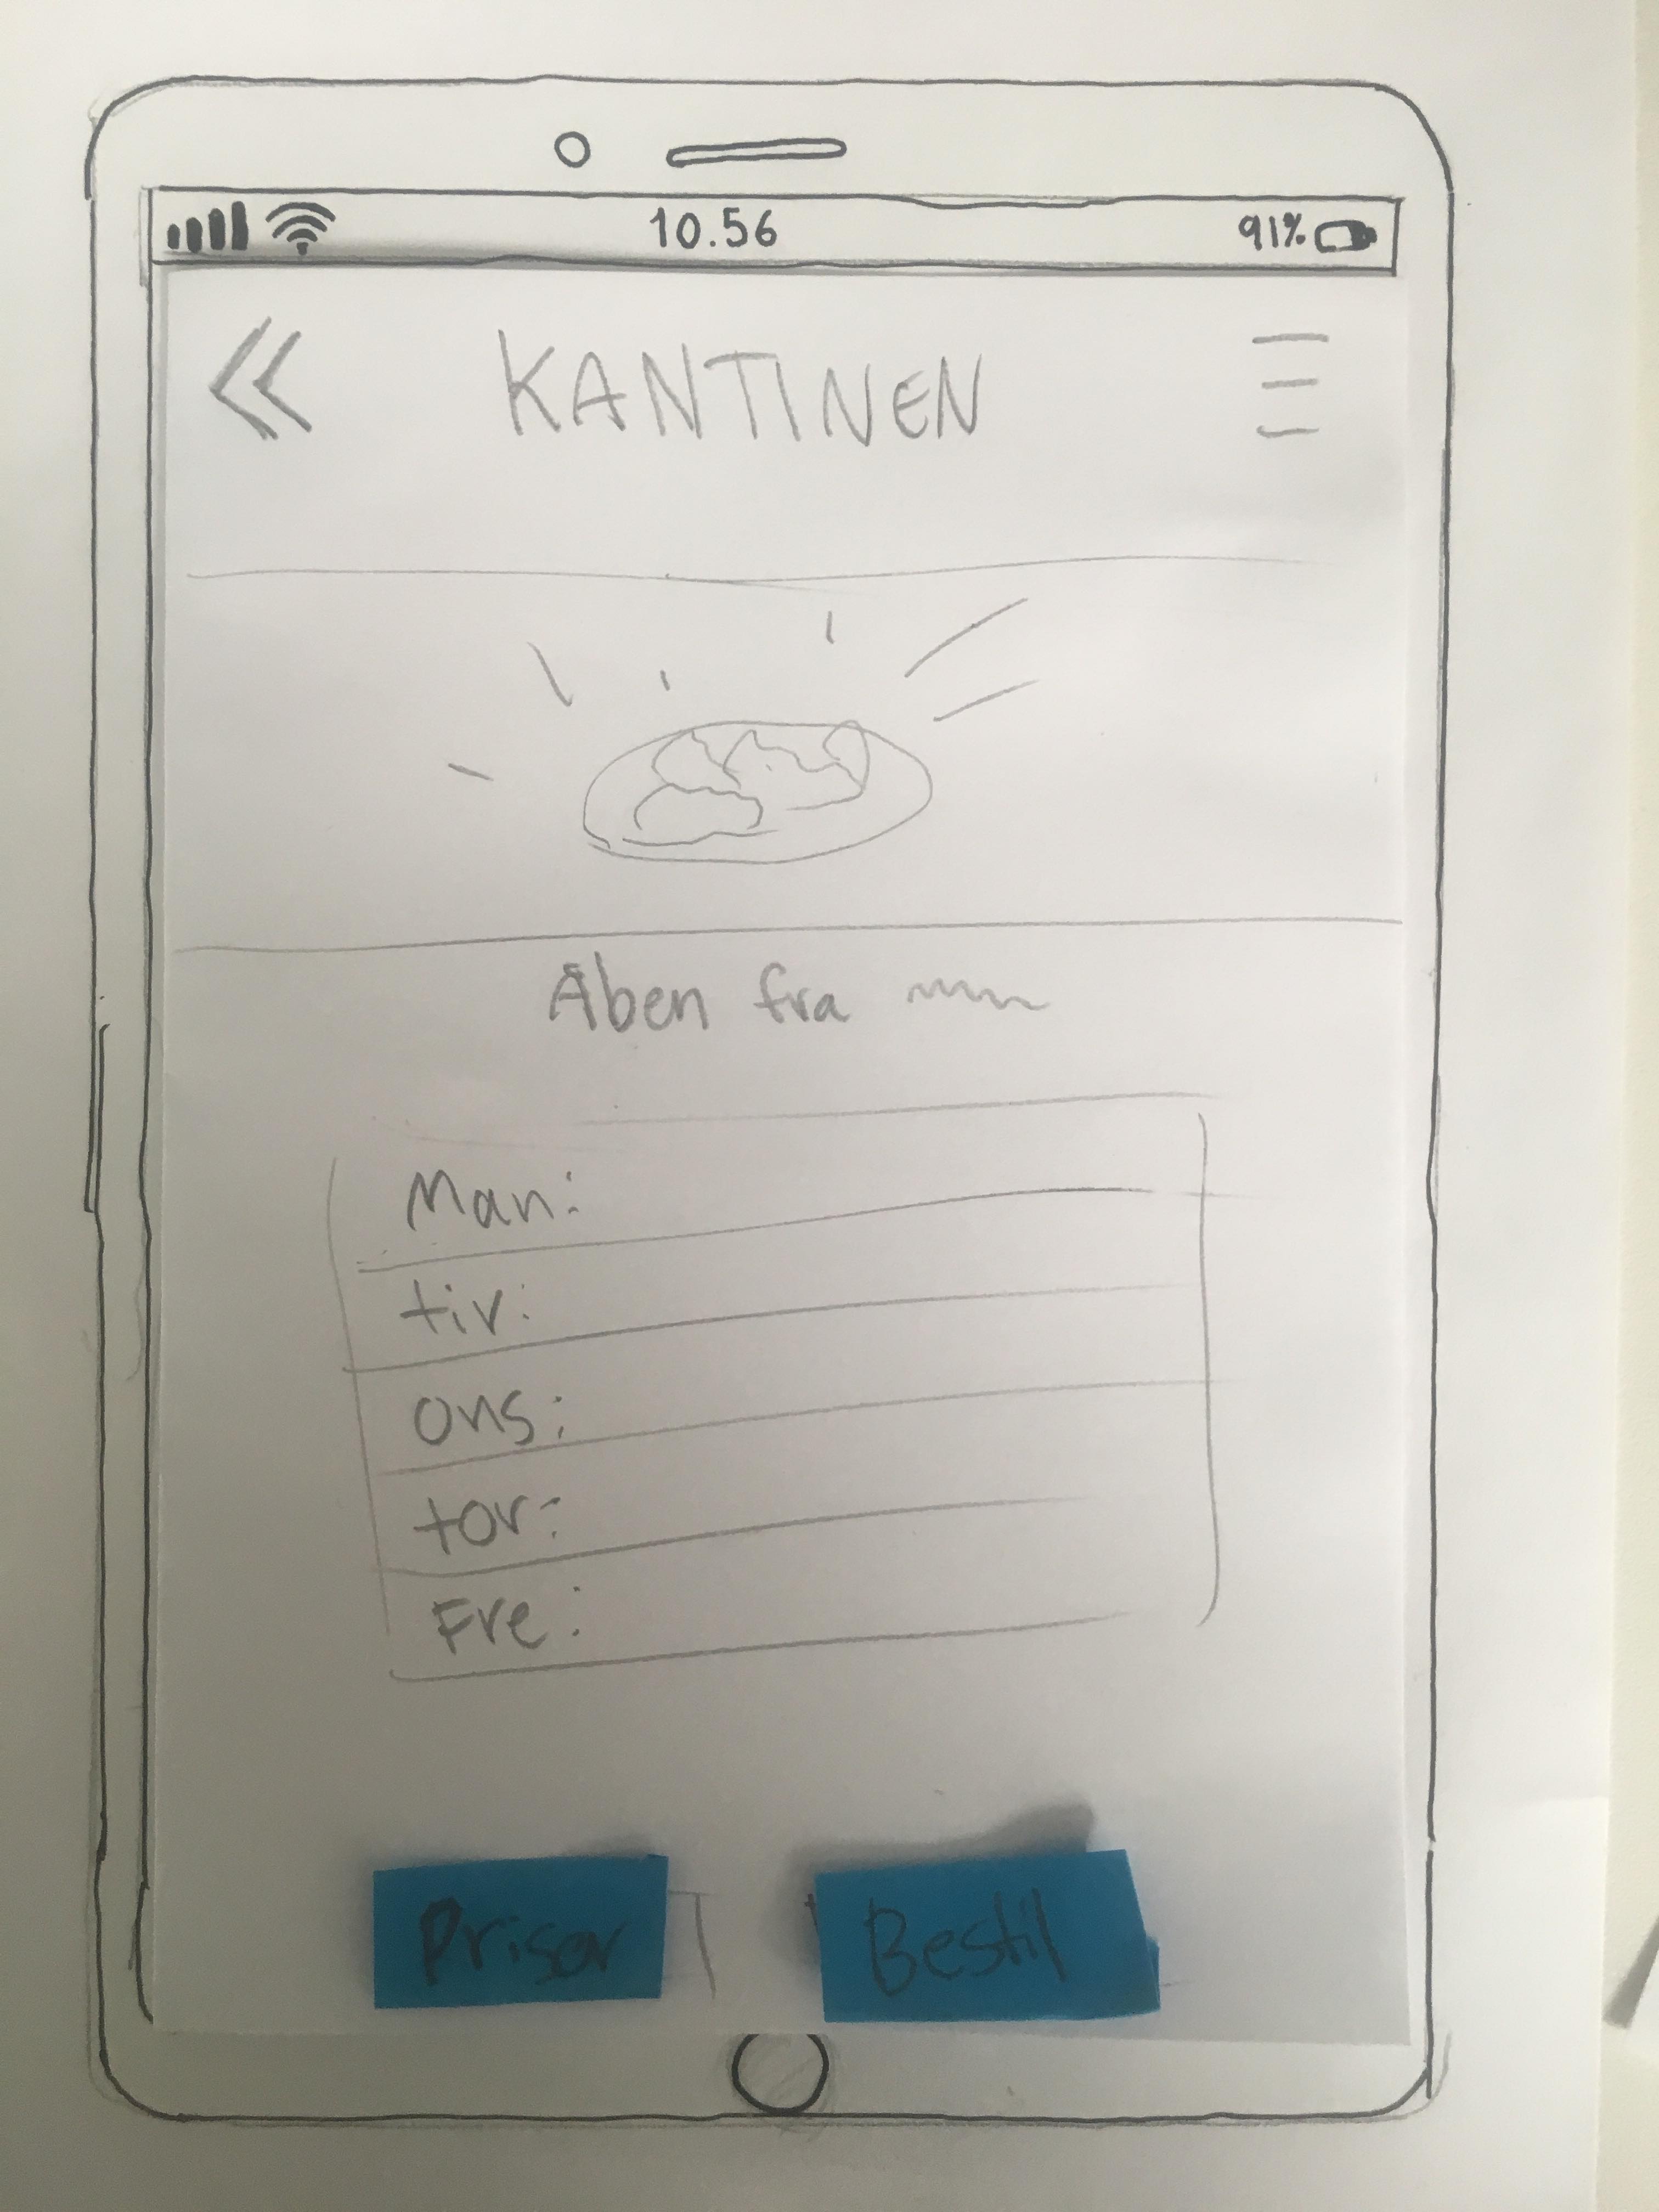 10.56 91%
KANTINEN
Åben fra
Man:
tir:
ons:
tor:
Fre:
Priser Bestil